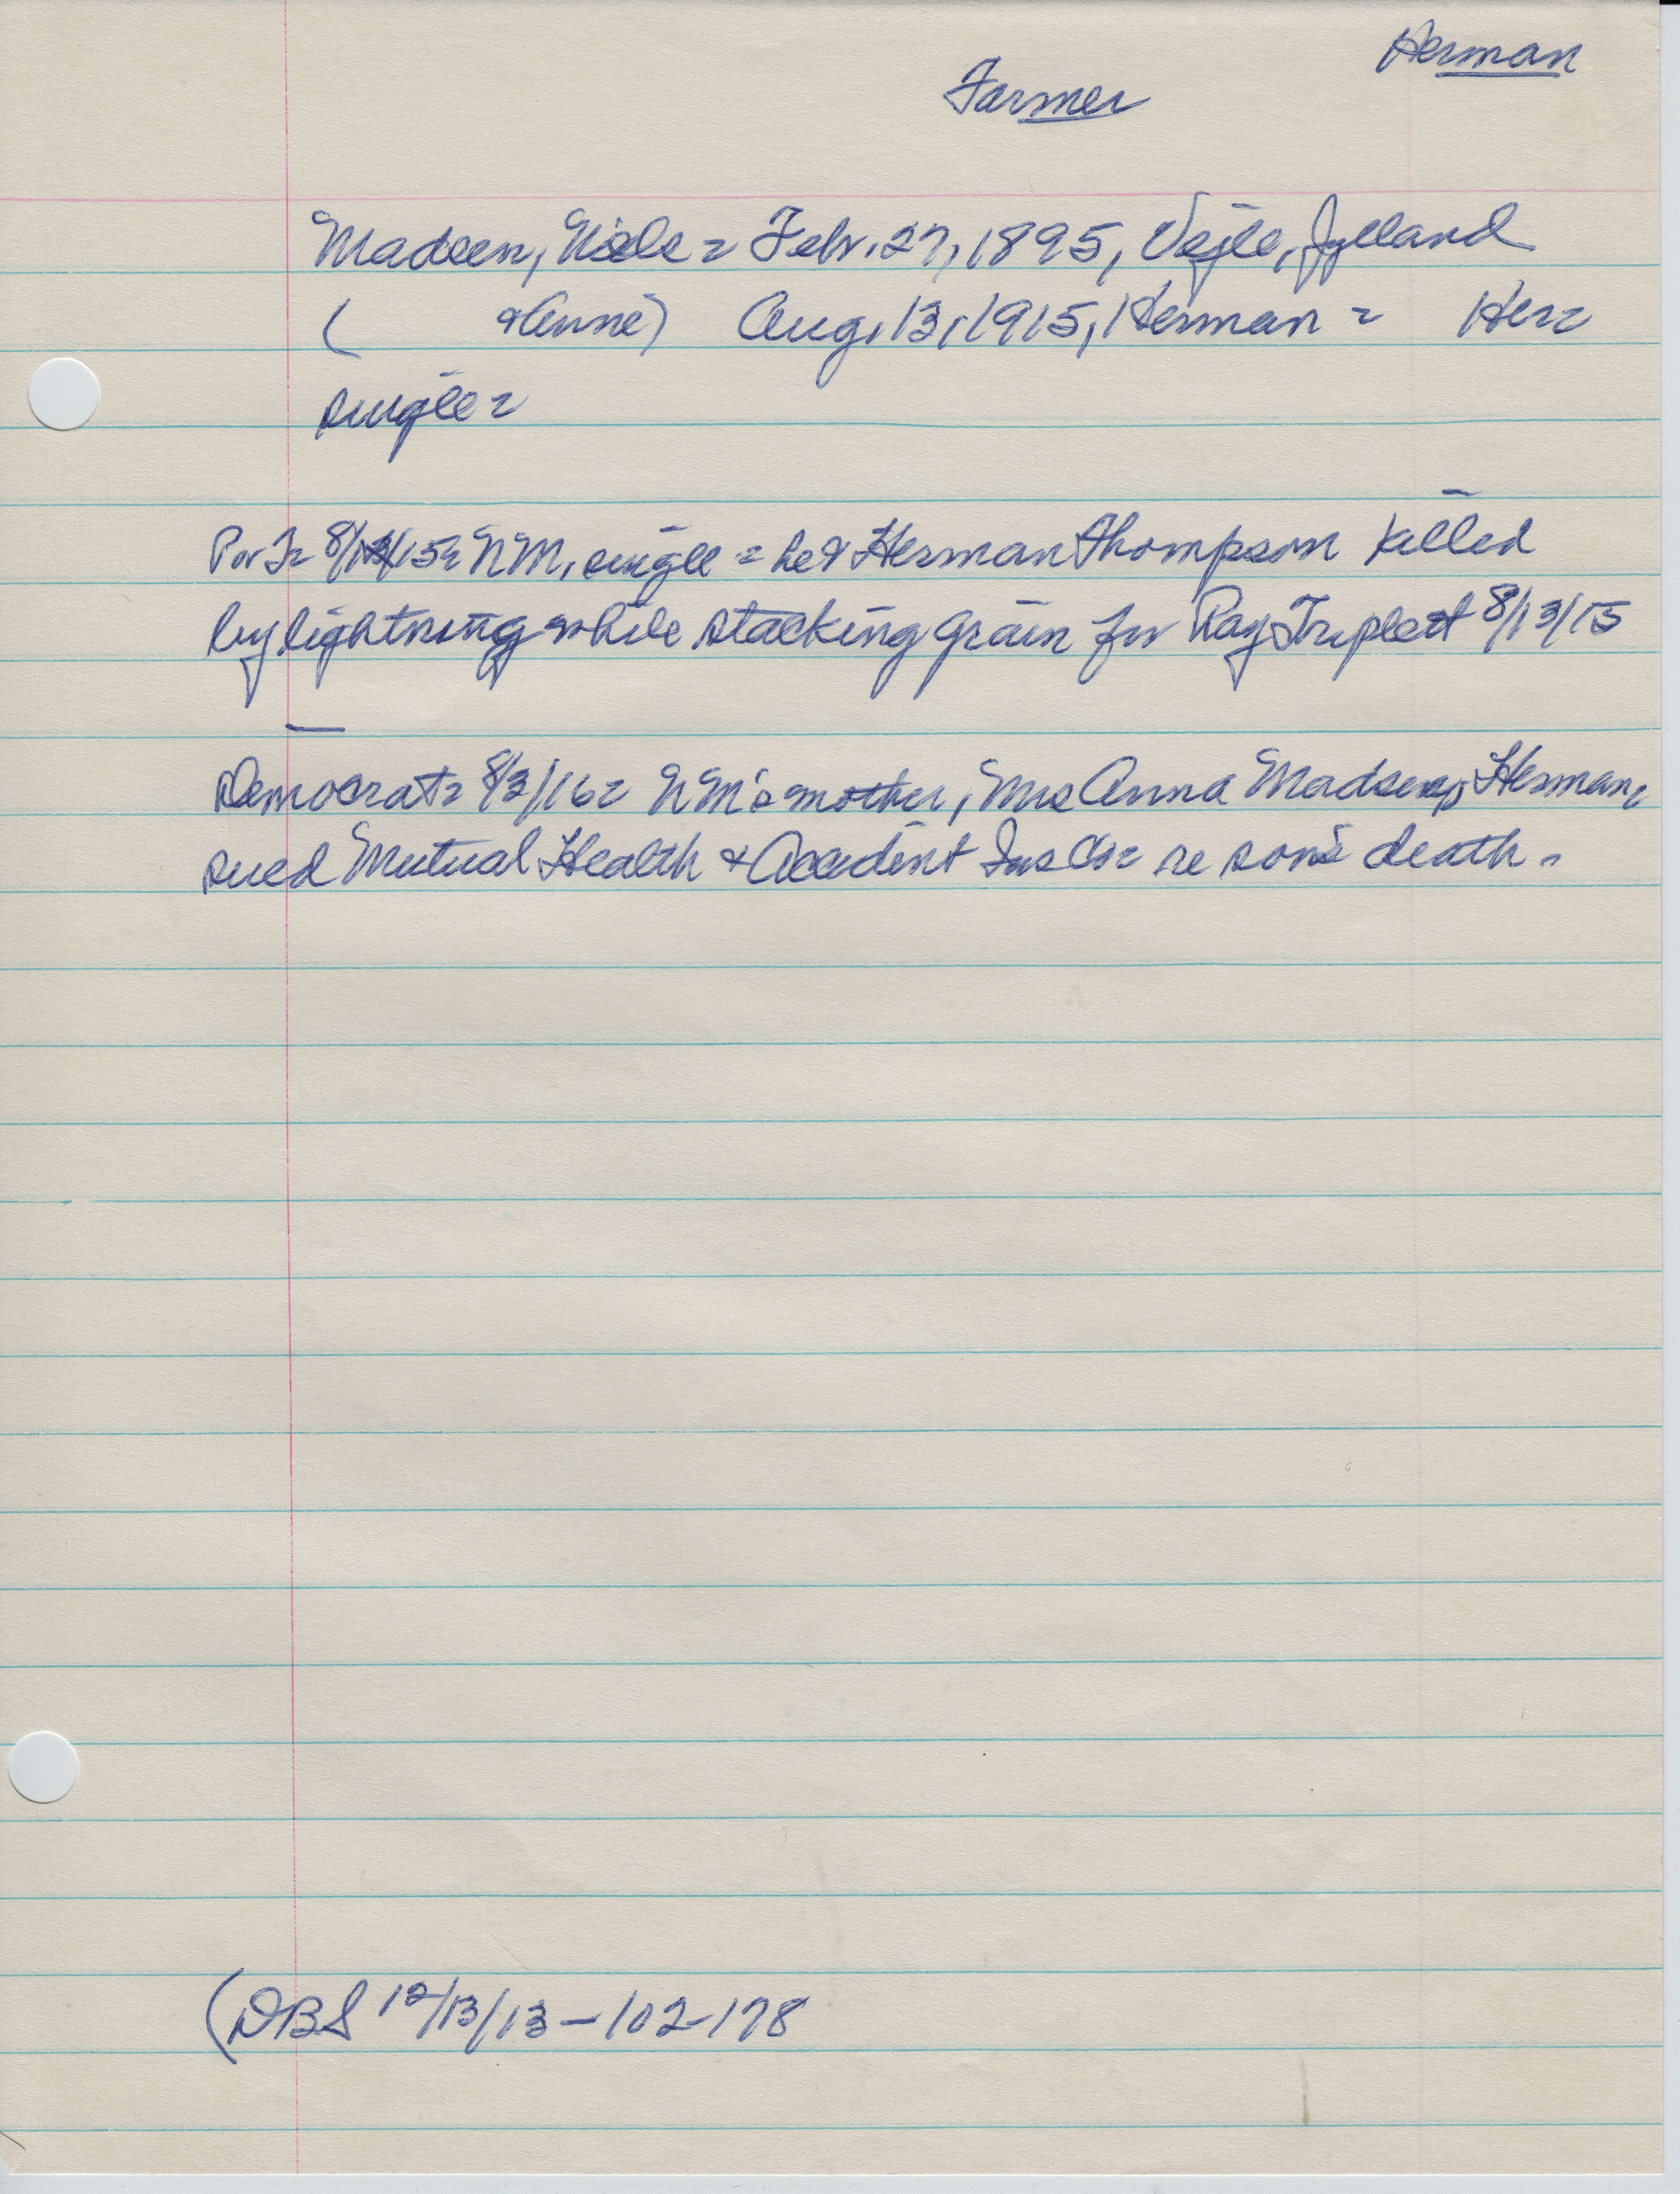 Herman
Farmer
Madsen, Niels = Febr. 27, 1895, Vejle, Jylland
( & Anne) Aug. 13, 1915, Herman = Her=
single =
8/13/15= NM, single = he & Herman Thompson killed
by lightning while stacking grain for Ray Triplett 8/13/15
—
Democrat= 8/3/16= NM's mother, Mrs Anna Madsen, Herman,
sued Mutual Health & Accident Ins Co= re son's death.
(DBS 12/13/13-102-178